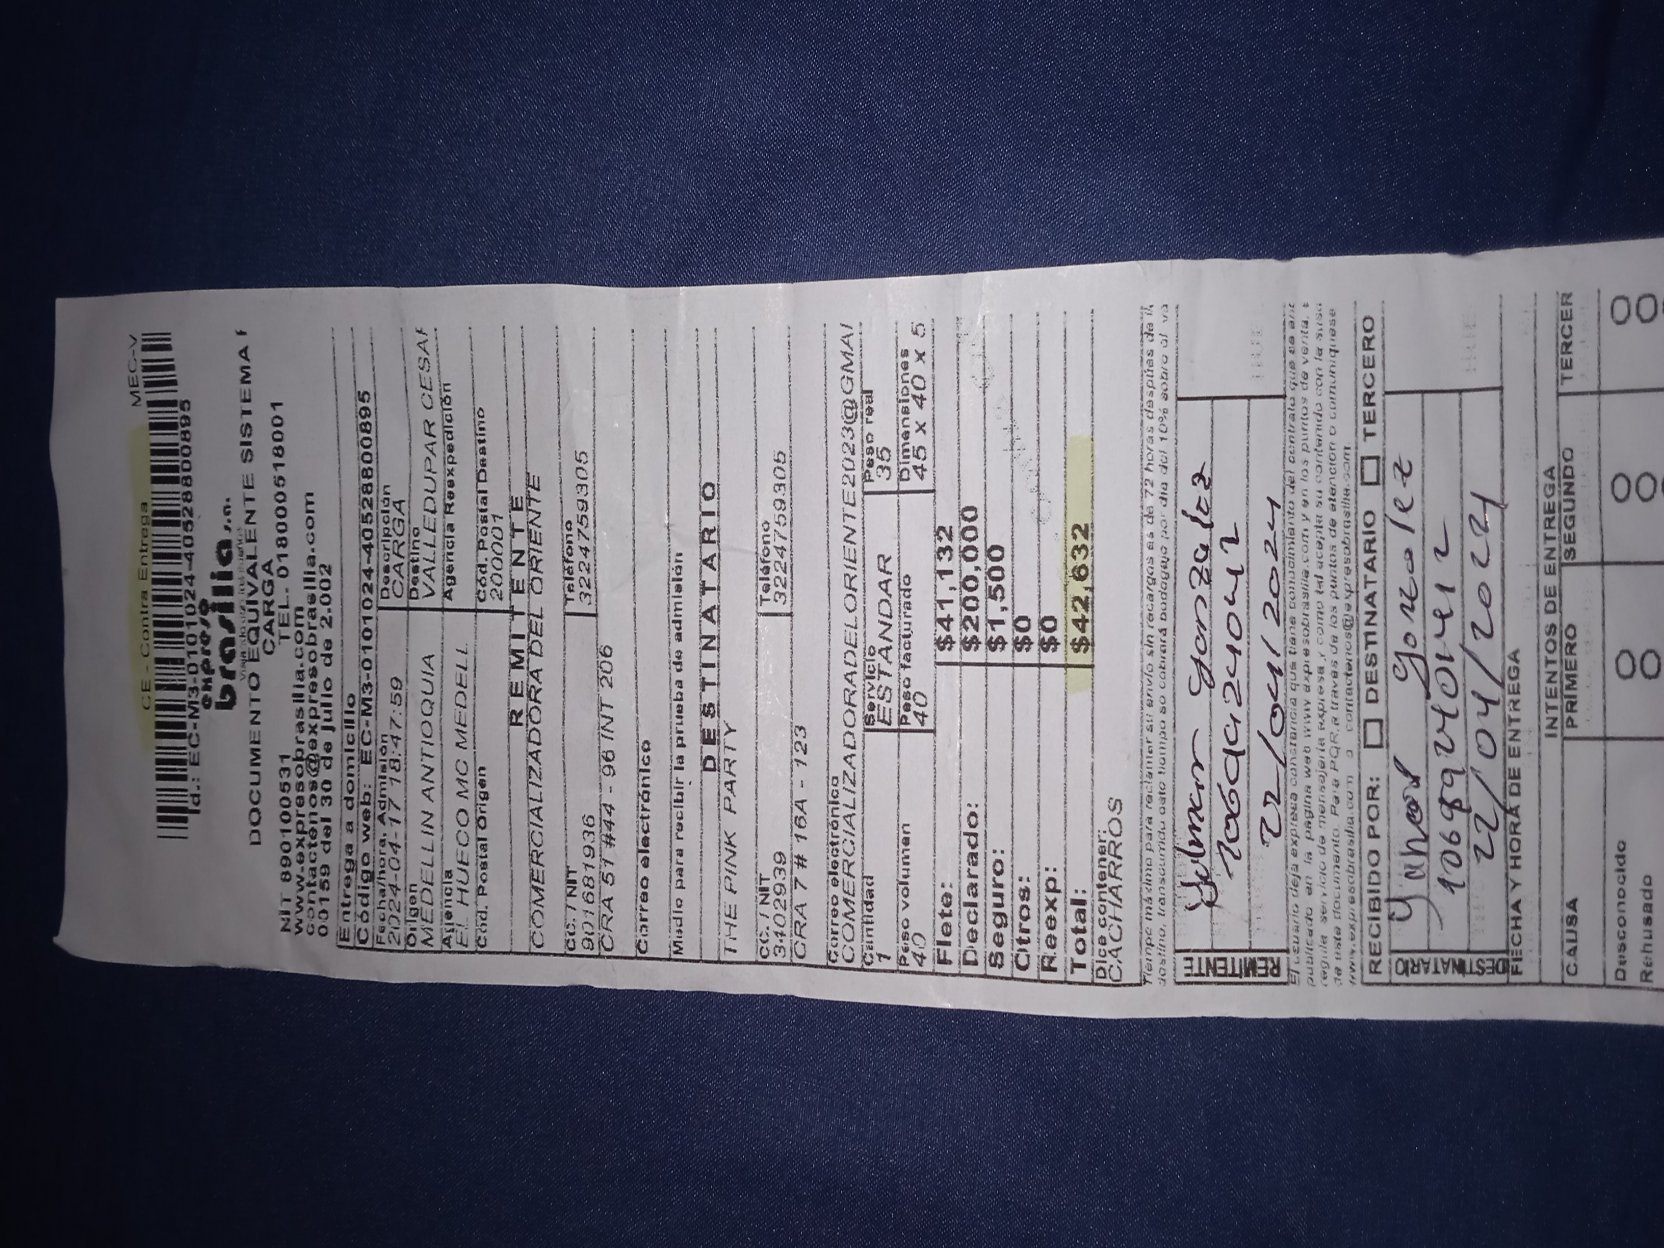 CE - Contra Entrega MEC-V
Id.: EC-M3-0101024-40528800895
expreso
brasilia s.a.
DOCUMENTO EQUIVALENTE SISTEMA
CARGA
NIT 890100531 TEL. 018000518001
www.expresobrasilia.com
contactenos@expresobrasilia.com
00159 del 30 de julio de 2.002
Entrega a domicilio
Código web: EC-M3-0101024-40528800895
Fecha/hora. Admisión Descripción
2024-04-17 18:47:59 CARGA
Origen Destino
MEDELLIN ANTIOQUIA VALLEDUPAR CESAR
Agencia Agencia Reexpedición
EL HUECO MC MEDELL
Cód. Postal Origen Cód. Postal Destino
200001
REMITENTE
COMERCIALIZADORA DEL ORIENTE
CC. / NIT Teléfono
901681936 3224759305
CRA 51 #44 - 96 INT 206
Correo electrónico
Medio para recibir la prueba de admisión
DESTINATARIO
THE PINK PARTY
CC. / NIT Teléfono
3402939 3224759305
CRA 7 # 16A - 123
Correo electrónico
COMERCIALIZADORADELORIENTE2023@GMAI
Cantidad Servicio Peso real
1 ESTANDAR 35
Peso volumen Peso facturado Dimensiones
40 40 45 x 40 x 5
Flete: $41,132
Declarado: $200,000
Seguro: $1,500
Otros: $0
Reexp: $0
Total: $42,632
Dice contener:
CACHARROS
Tiempo máximo para reclamar su envío sin recargos es de 72 horas después de
destino, transcurrido este tiempo se cobrará bodegaje por día del 10% sobre el va
REMITENTE
González
22/04/2024
El usuario deja expresa constancia que tiene conocimiento del contrato que se
publicado en la página web www.expresobrasilia.com y en los puntos de venta,
regula servicio de mensajería expresa, y como tal acepta su contenido con la
de este documento. Para PQR a través de los puntos de atención o comuníquese
www.expresobrasilia.com o contactenos@expresobrasilia.com
RECIBIDO POR: DESTINATARIO TERCERO
DESTINATARIO
Gonzalez
22/04/2024
FECHA Y HORA DE ENTREGA
INTENTOS DE ENTREGA
CAUSA PRIMERO SEGUNDO TERCER
Desconocido
Rehusado